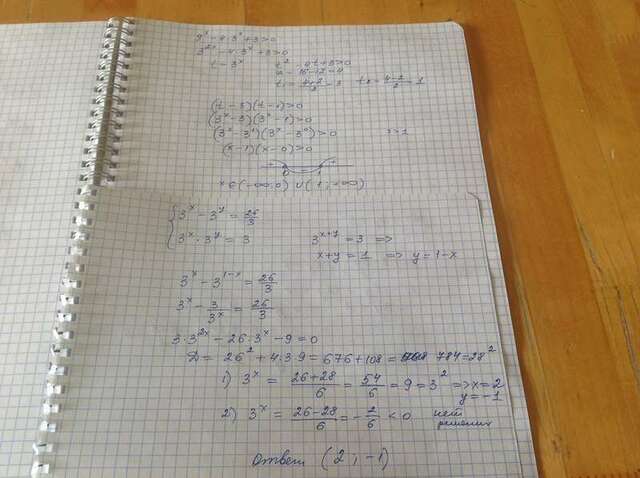 9ˣ - 4·3ˣ + 3 > 0
3²ˣ - 4·3ˣ + 3 > 0
t = 3ˣ t² - 4t + 3 > 0
D = 16 - 12 = 4
t₁ = (4+2)/2 = 3 t₂ = (4-2)/2 = 1
(t - 3)(t - 1) > 0
(3ˣ - 3)(3ˣ - 1) > 0
(3ˣ - 3¹)(3ˣ - 3⁰) > 0 3 > 1
(x - 1)(x - 0) > 0
+ - +
0 1
x ∈ (-∞; 0) ∪ (1; +∞)
{ 3ˣ - 3ʸ = 26/3
3ˣ · 3ʸ = 3 3ˣ⁺ʸ = 3 =>
x + y = 1 => y = 1 - x
3ˣ - 3¹⁻ˣ = 26/3
3ˣ - 3/3ˣ = 26/3
3·3²ˣ - 26·3ˣ - 9 = 0
D = 26² + 4·3·9 = 676 + 108 = 784 = 28²
1) 3ˣ = (26+28)/6 = 54/6 = 9 = 3² => x = 2
y = -1
2) 3ˣ = (26-28)/6 = -2/6 < 0 нет
решения
Ответ (2; -1)